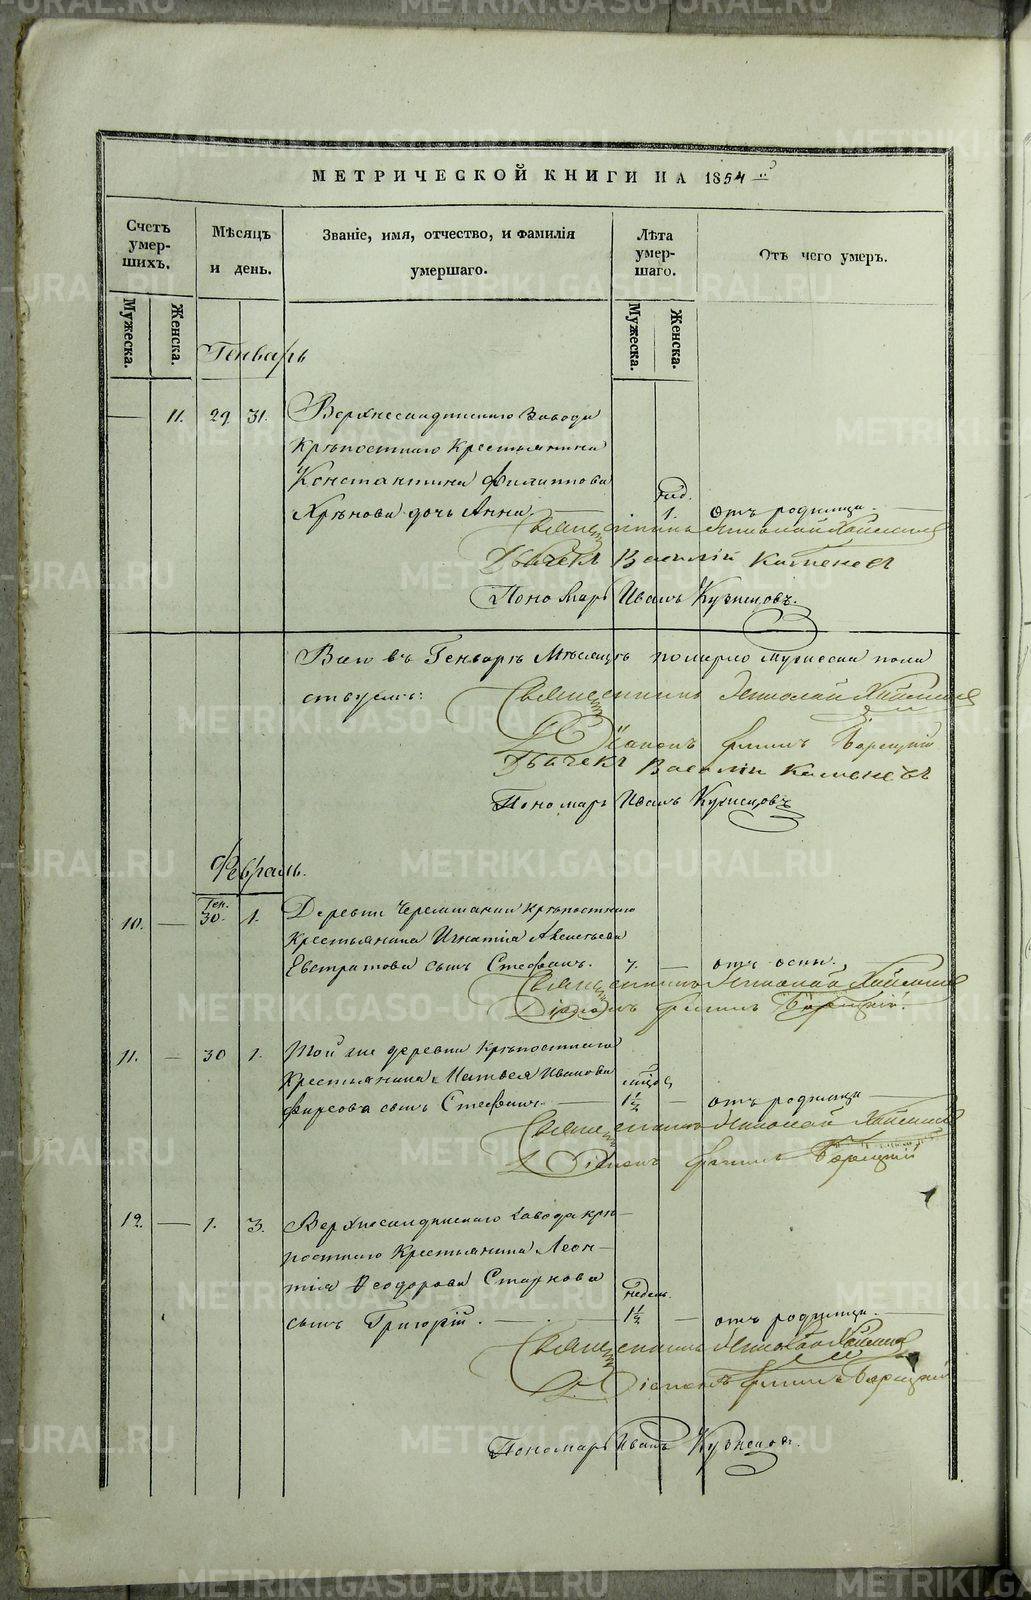 МЕТРИЧЕСКОЙ КНИГИ НА 1854 й
Счетъ умер-шихъ.
Мужеска.
Женска.
Мѣсяцъ и день.
Званіе, имя, отчество, и фамилія умершаго.
Лѣта умер-шаго.
Мужеска.
Женска.
Отъ чего умеръ.
Генварь
— 11. 29 31. Верхнесалдинскаго завода
Крѣпостнаго Крестьянина
Константина Филиппова
Хрѣнова дочь Анна. нед. 1. отъ родимца.
Священникъ Николай
Дьячекъ Василій Каменевъ
Пономарь Иванъ Кузнецовъ.
Всего въ Генварѣ Мѣсяцѣ померло мужеска пола
Священникъ Николай
Діаконъ Филипъ
Дьячекъ Василій Каменевъ
Пономарь Иванъ Кузнецовъ
Февраль.
10. — Ген. 30. 1. Деревни Черемшанки Крѣпостнаго
Крестьянина Игнатія
Евстратова сынъ Стефанъ. 7. — отъ оспы.
Священникъ Николай
Діаконъ Филипъ
11. — 30 1. Той же деревни Крѣпостнаго
Крестьянина Матвея Иванова
Фирсова сынъ Стефанъ. — 1½ — отъ родимца
Священникъ Николай
Діаконъ Филипъ
12. — 1. 3. Верхнесалдинскаго завода крѣ-
постнаго Крестьянина Леон-
тія Ѳеодорова Старкова
сынъ Григорій. — недель. 1½ — отъ родимца.
Священникъ Николай
Діаконъ Филипъ
Пономарь Иванъ Кузнецовъ.
METRIKI.GASO-URAL.RU